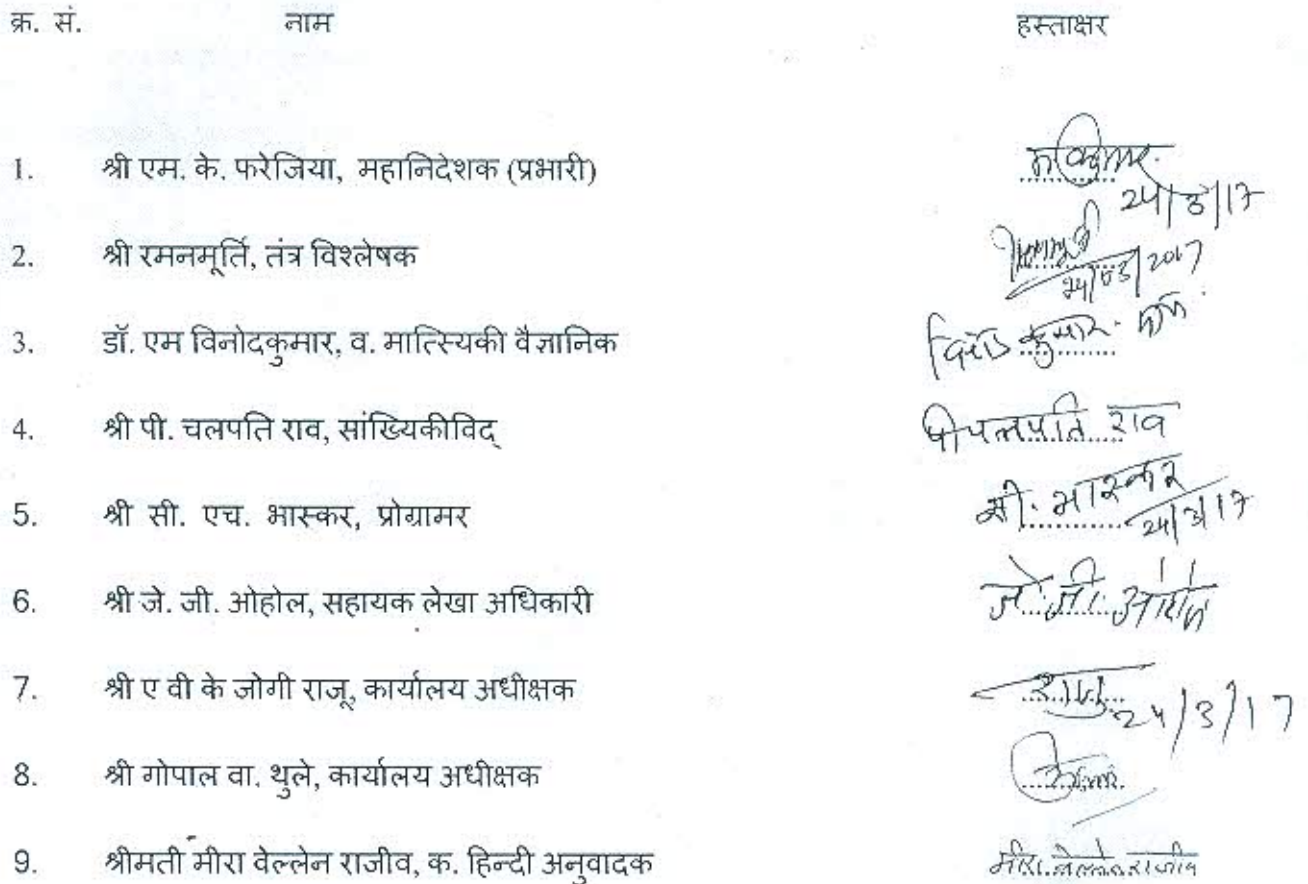 क्र. सं. नाम हस्ताक्षर
1. श्री एम. के. फरेजिया, महानिदेशक (प्रभारी)
24/3/17
2. श्री रमनमूर्ति, तंत्र विश्लेषक
24/03/2017
3. डॉ. एम विनोदकुमार, व. मात्स्यिकी वैज्ञानिक विनोद कुमार
4. श्री पी. चलपति राव, सांख्यिकीविद् पी चलपति राव
5. श्री सी. एच. भास्कर, प्रोग्रामर सी. भास्कर
24/3/17
6. श्री जे. जी. ओहोल, सहायक लेखा अधिकारी जे. जी.
7. श्री ए वी के जोगी राजू, कार्यालय अधीक्षक राजु
24/3/17
8. श्री गोपाल वा. थुले, कार्यालय अधीक्षक
9. श्रीमती मीरा वेल्लेन राजीव, क. हिन्दी अनुवादक मीरा वेल्लेन राजीव